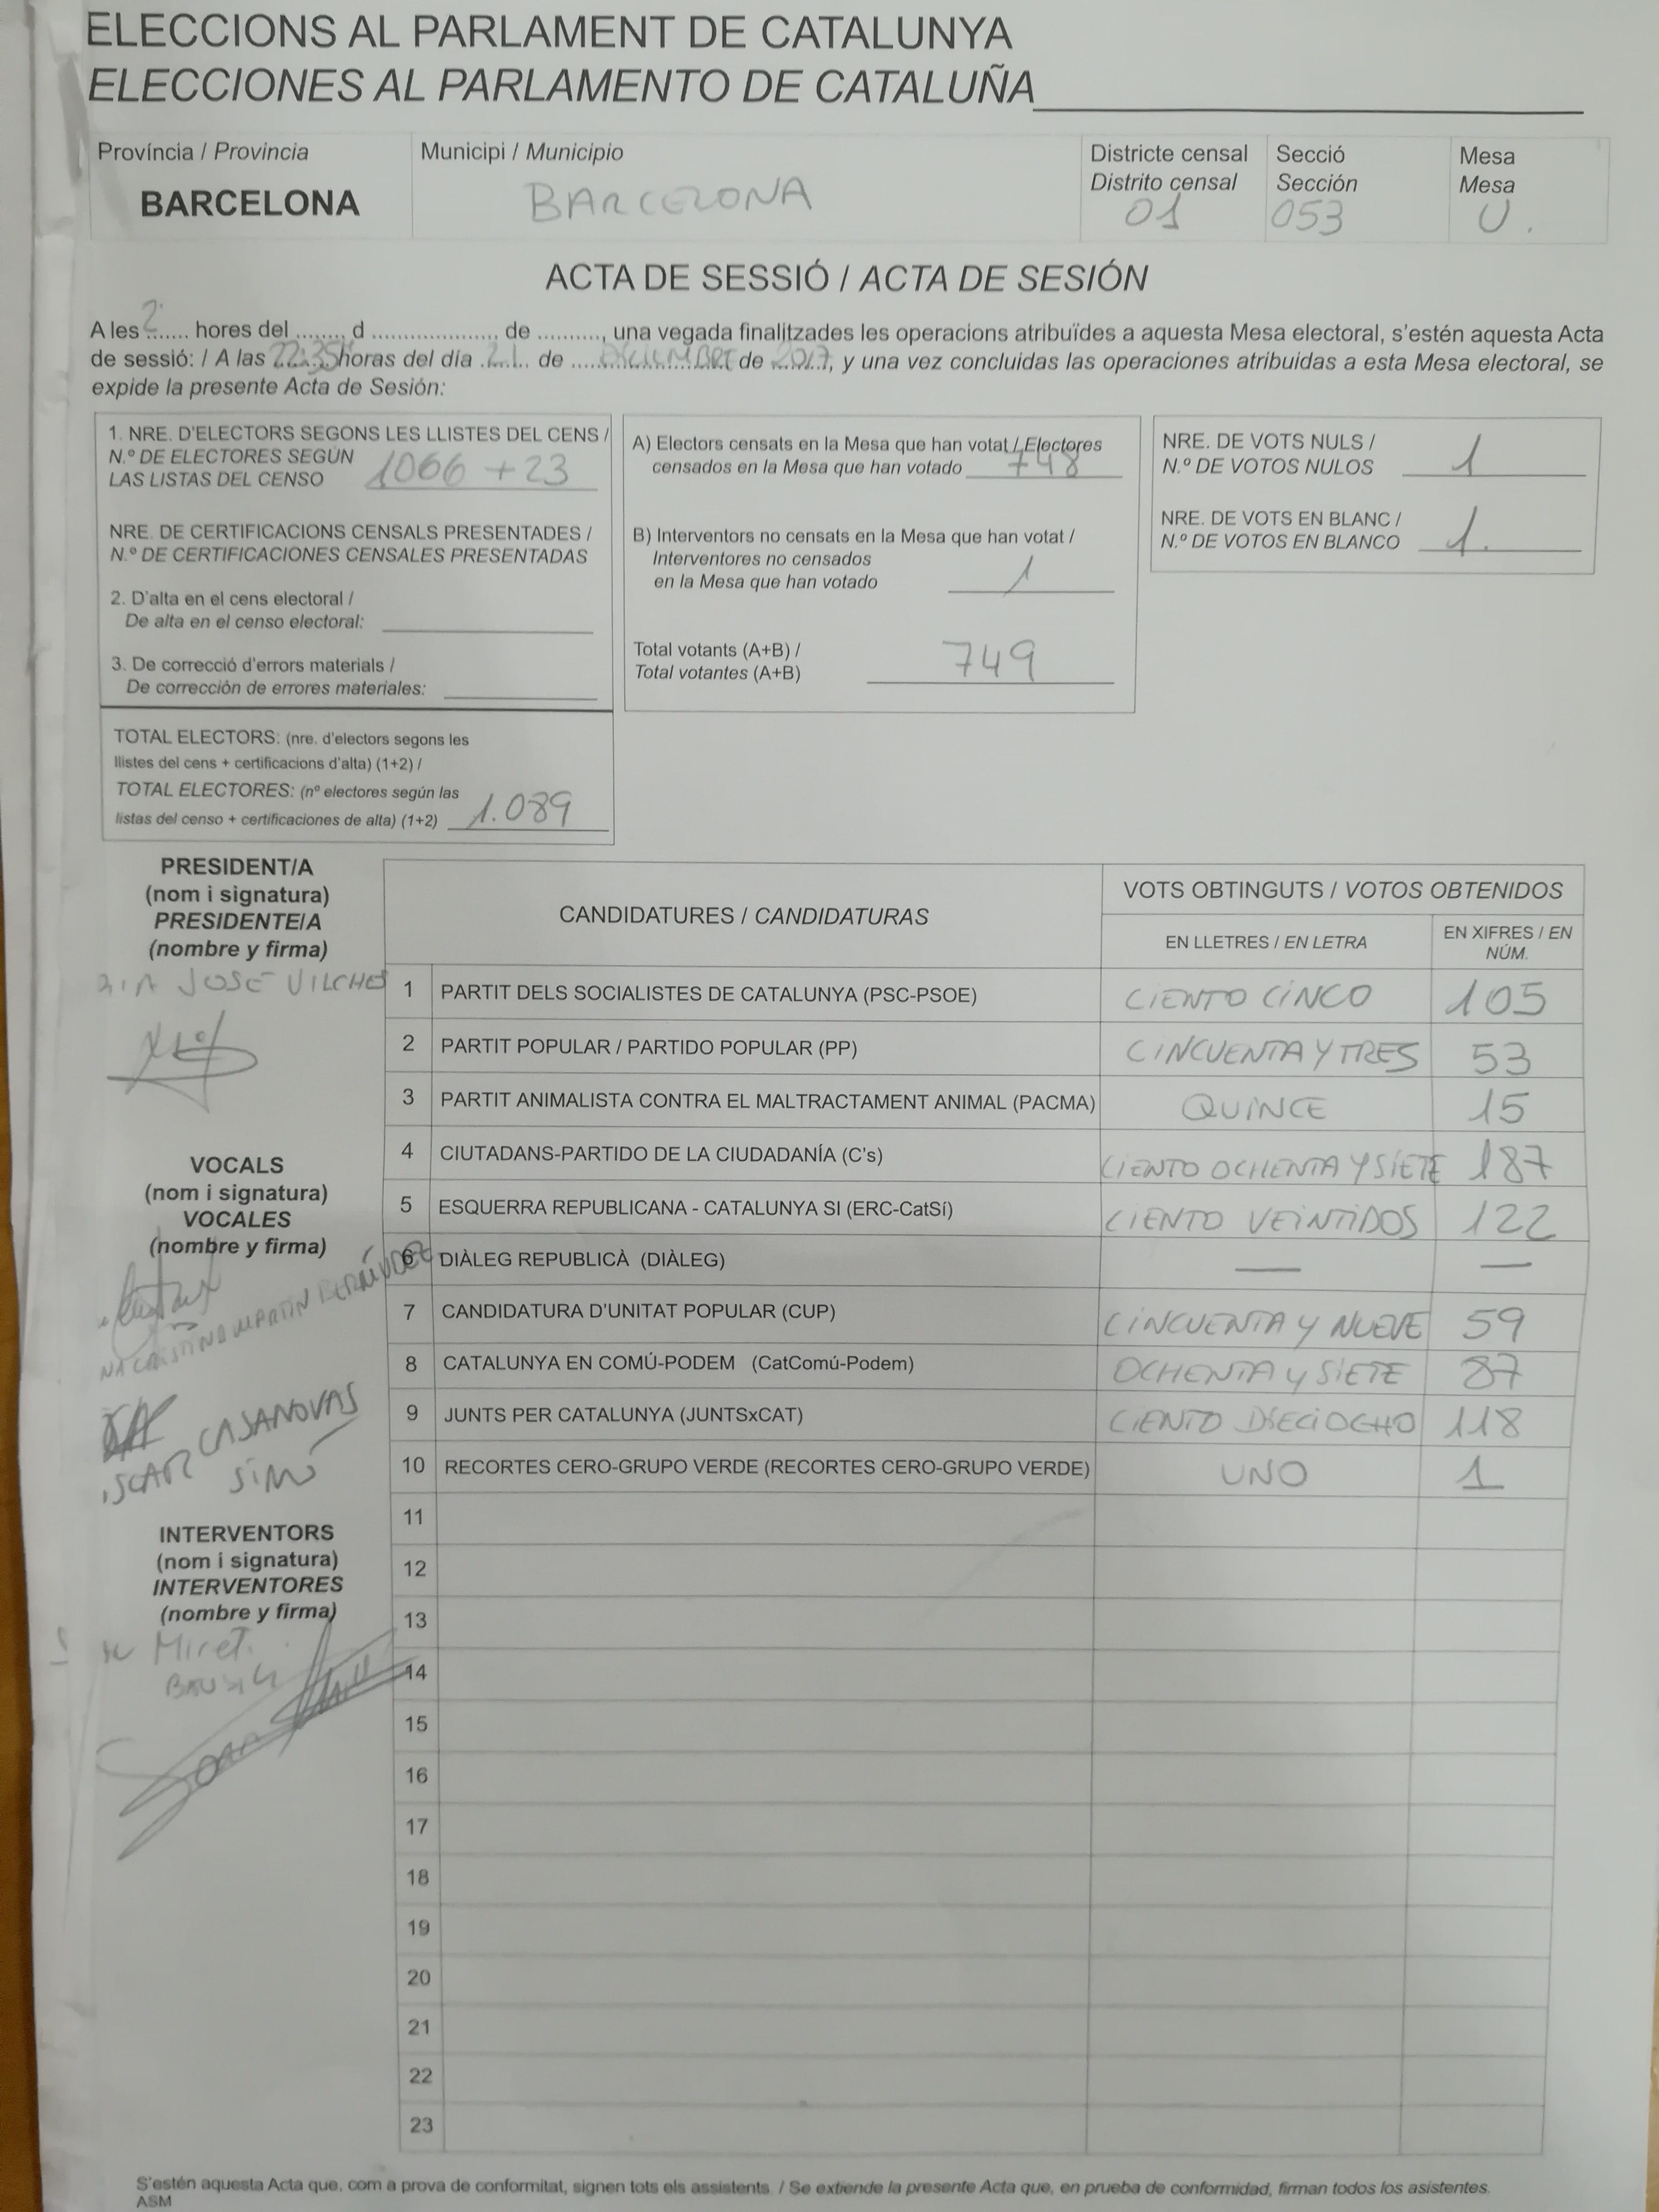 ELECCIONS AL PARLAMENT DE CATALUNYA
ELECCIONES AL PARLAMENTO DE CATALUÑA
Província / Provincia
BARCELONA
Municipi / Municipio
BARCELONA
Districte censal
Distrito censal
01
Secció
Sección
053
Mesa
Mesa
U.
ACTA DE SESSIÓ / ACTA DE SESIÓN
A les 2 ...... hores del ........ d .................... de .........., una vegada finalitzades les operacions atribuïdes a aquesta Mesa electoral, s'estén aquesta Acta
de sessió: / A las 22:35 horas del día 21 de DICIEMBRE de 2017, y una vez concluidas las operaciones atribuidas a esta Mesa electoral, se
expide la presente Acta de Sesión:
1. NRE. D'ELECTORS SEGONS LES LLISTES DEL CENS /
N.º DE ELECTORES SEGÚN
LAS LISTAS DEL CENSO 1066 + 23
NRE. DE CERTIFICACIONS CENSALS PRESENTADES /
N.º DE CERTIFICACIONES CENSALES PRESENTADAS
2. D'alta en el cens electoral /
De alta en el censo electoral:
3. De correcció d'errors materials /
De corrección de errores materiales:
TOTAL ELECTORS: (nre. d'electors segons les
llistes del cens + certificacions d'alta) (1+2) /
TOTAL ELECTORES: (nº electores según las
listas del censo + certificaciones de alta) (1+2) 1.089
A) Electors censats en la Mesa que han votat / Electores
censados en la Mesa que han votado 748
B) Interventors no censats en la Mesa que han votat /
Interventores no censados
en la Mesa que han votado 1
Total votants (A+B) /
Total votantes (A+B) 749
NRE. DE VOTS NULS /
N.º DE VOTOS NULOS 1
NRE. DE VOTS EN BLANC /
N.º DE VOTOS EN BLANCO 1.
PRESIDENT/A
(nom i signatura)
PRESIDENTE/A
(nombre y firma)
JOSE VILCHES
VOCALS
(nom i signatura)
VOCALES
(nombre y firma)
CRISTINA MARTIN BERMÚDEZ
CASANOVAS
SIMÓ
INTERVENTORS
(nom i signatura)
INTERVENTORES
(nombre y firma)
Miret.
CANDIDATURES / CANDIDATURAS
VOTS OBTINGUTS / VOTOS OBTENIDOS
EN LLETRES / EN LETRA
EN XIFRES / EN
NÚM.
1 PARTIT DELS SOCIALISTES DE CATALUNYA (PSC-PSOE) CIENTO CINCO 105
2 PARTIT POPULAR / PARTIDO POPULAR (PP) CINCUENTA Y TRES 53
3 PARTIT ANIMALISTA CONTRA EL MALTRACTAMENT ANIMAL (PACMA) QUINCE 15
4 CIUTADANS-PARTIDO DE LA CIUDADANÍA (C's) CIENTO OCHENTA Y SIETE 187
5 ESQUERRA REPUBLICANA - CATALUNYA SI (ERC-CatSí) CIENTO VEINTIDOS 122
6 DIÀLEG REPUBLICÀ (DIÀLEG) — —
7 CANDIDATURA D'UNITAT POPULAR (CUP) CINCUENTA Y NUEVE 59
8 CATALUNYA EN COMÚ-PODEM (CatComú-Podem) OCHENTA Y SIETE 87
9 JUNTS PER CATALUNYA (JUNTSxCAT) CIENTO DIECIOCHO 118
10 RECORTES CERO-GRUPO VERDE (RECORTES CERO-GRUPO VERDE) UNO 1
11
12
13
14
15
16
17
18
19
20
21
22
23
S'estén aquesta Acta que, com a prova de conformitat, signen tots els assistents. / Se extiende la presente Acta que, en prueba de conformidad, firman todos los asistentes.
ASM